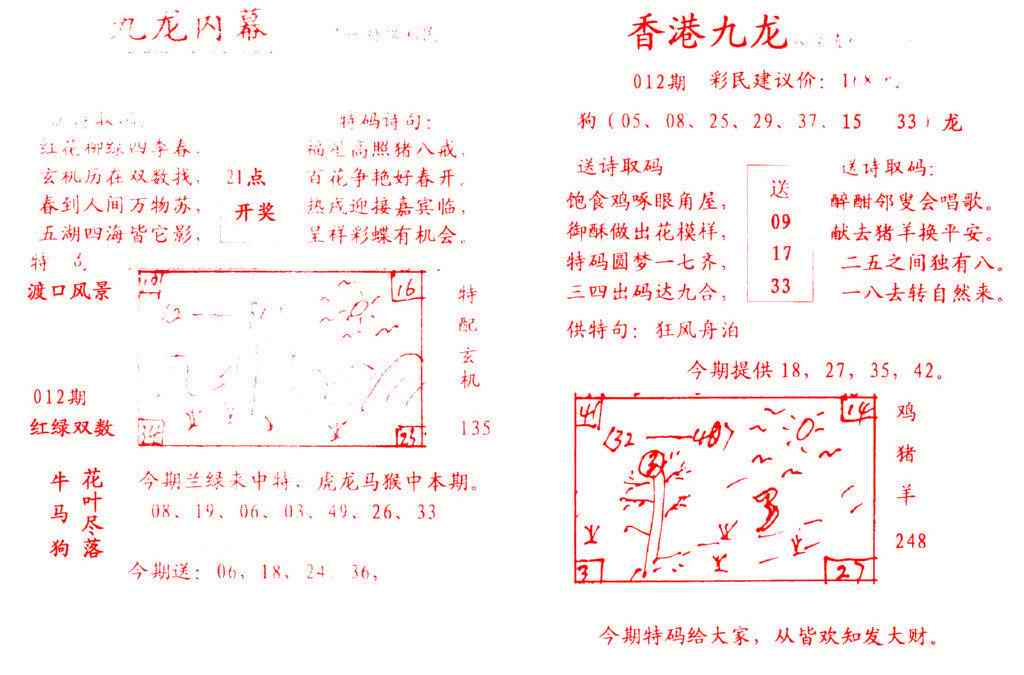 九龙内幕
特码诗句：
红花柳绿四季春，
玄机历在双数找，
春到人间万物苏，
五湖四海皆它影，
21点
开奖
福星高照猪八戒，
百花争艳好春开，
热戌迎接嘉宾临，
呈祥彩蝶有机会。
特
渡口风景
16
23
特配玄机
135
012期
红绿双数
牛马狗
花叶尽落
今期兰绿来中特．虎龙马猴中本期。
08、19、06、03、49、26、33
今期送：06，18、24 36，
香港九龙
012期 彩民建议价：
狗（05、08、25、29、37．15 33）龙
送诗取码
饱食鸡啄眼角屋，
御酥做出花模样，
特码圆梦一七齐，
三四出码达九合，
送
09
17
33
送诗取码：
醉酣邻叟会唱歌。
献去猪羊换平安。
二五之间独有八。
一八去转自然来。
供特句：狂风舟泊
今期提供18，27，35，42。
41
14
(32——40)
3
27
鸡猪羊
248
今期特码给大家，从皆欢知发大财。